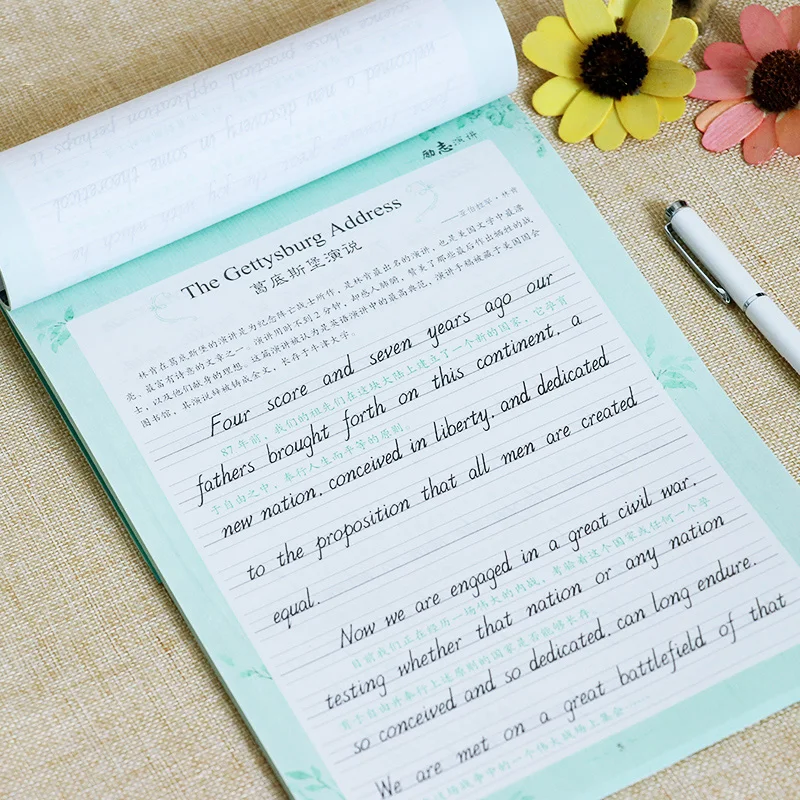 welcomed a new discovery in some theoretical
science whose practical application perhaps it
励志演讲
The Gettysburg Address
葛底斯堡演说
——亚伯拉罕·林肯
林肯在葛底斯堡的演讲是为纪念阵亡战士所作，是林肯最出名的演讲，也是美国文学中最漂
亮、最富有诗意的文章之一。演讲用时不到2分钟，却感人肺腑，赞美了那些最后作出牺牲的战
士，以及他们献身的理想。这篇演讲被认为是英语演讲中的最高典范，演讲手稿被藏于美国国会
图书馆，其演说辞被铸成金文，长存于牛津大学。
Four score and seven years ago our
87年前，我们的祖先们在这块大陆上建立了一个新的国家，它孕育
fathers brought forth on this continent, a
于自由之中，奉行人生而平等的原则。
new nation, conceived in liberty, and dedicated
to the proposition that all men are created
equal.
Now we are engaged in a great civil war,
目前我们正在经历一场伟大的内战，考验着这个国家或任何一个孕
testing whether that nation or any nation
育于自由并奉行上述原则的国家是否能够长存。
so conceived and so dedicated, can long endure.
We are met on a great battlefield of that
战争中的一个伟大战场上集会
5